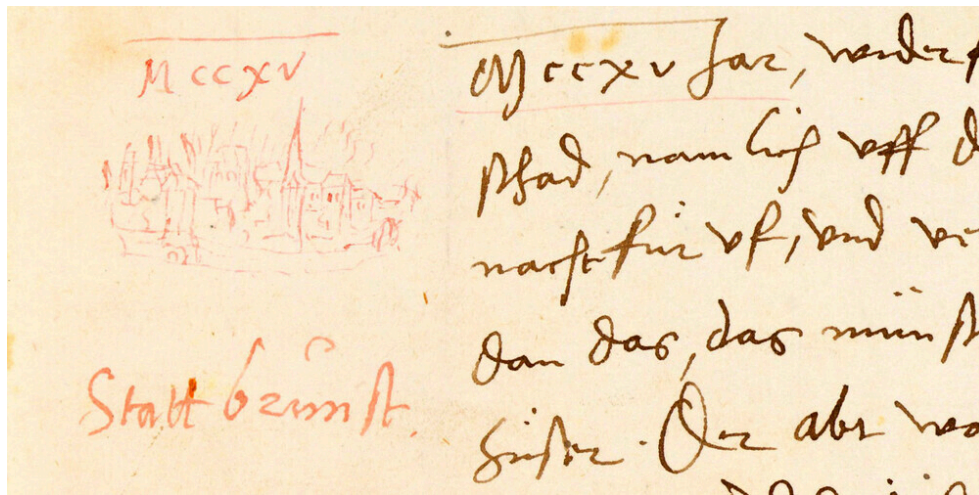 MCCXV
Statt brunst.
MCCXV Jar, wider
schad, namlich uff d
nacht für uf, und ve
dan das, das münst
hüser. Der abt wa